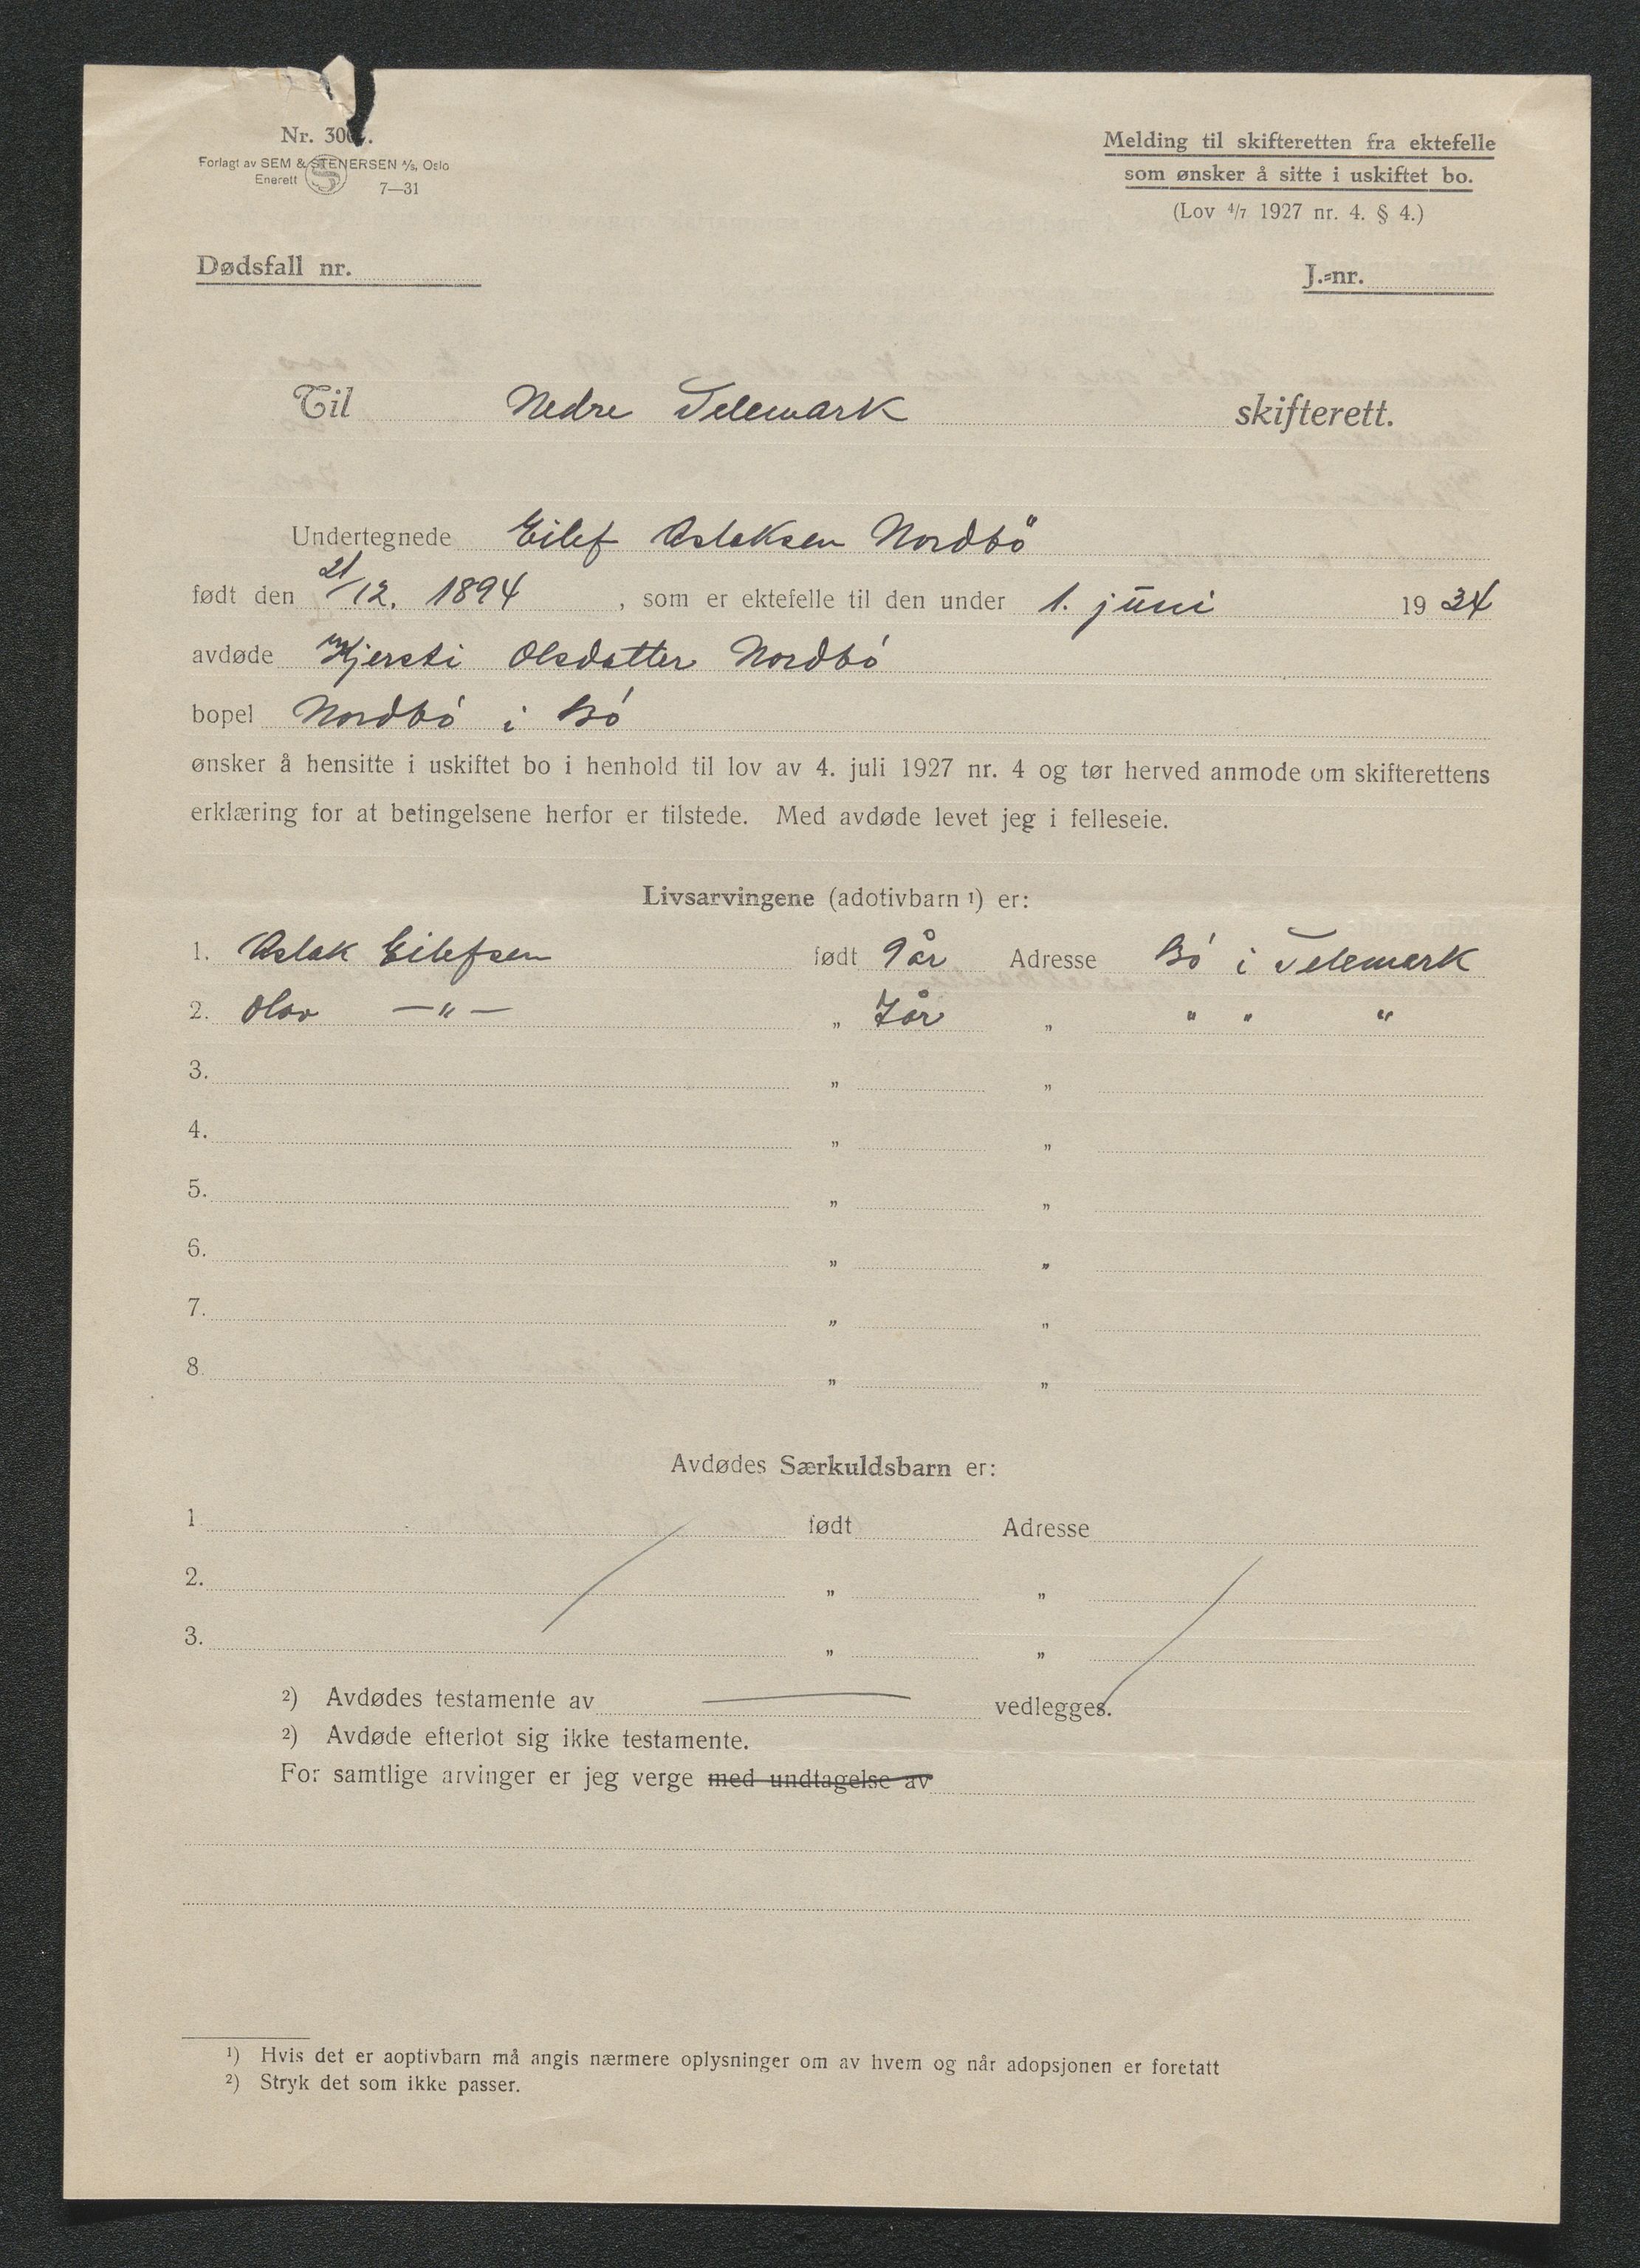 Forlagt av SEM & STENERSEN A/S, Oslo
Enerett 7—31
Melding til skifteretten fra ektefelle
som ønsker å sitte i uskiftet bo.
(Lov 4/7 1927 nr. 4. § 4.)
Dødsfall nr.
J.-nr.
Til Nedre Telemark skifterett.
Undertegnede Eilef Aslaksen Nordbö
født den 21/12. 1894, som er ektefelle til den under 1. juni 1934
avdøde Kjersti Olsdatter Nordbó
bopel Nordbó i Bó
ønsker å hensitte i uskiftet bo i henhold til lov av 4. juli 1927 nr. 4 og tør herved anmode om skifterettens
erklæring for at betingelsene herfor er tilstede. Med avdøde levet jeg i felleseie.
Livsarvingene (adotivbarn ¹) er:
1. Aslak Eilefsen født 9 år Adresse Bó i Telemark
2. Olav —"— „ 7 år „ " " "
3. „ „
4. „ „
5. „ „
6. „ „
7. „ „
8. „ „
Avdødes Særkuldsbarn er:
1 født Adresse
2. „ „
3. „ „
²) Avdødes testamente av — vedlegges.
²) Avdøde efterlot sig ikke testamente.
For samtlige arvinger er jeg verge med undtagelse av
¹) Hvis det er aoptivbarn må angis nærmere oplysninger om av hvem og når adopsjonen er foretatt
²) Stryk det som ikke passer.